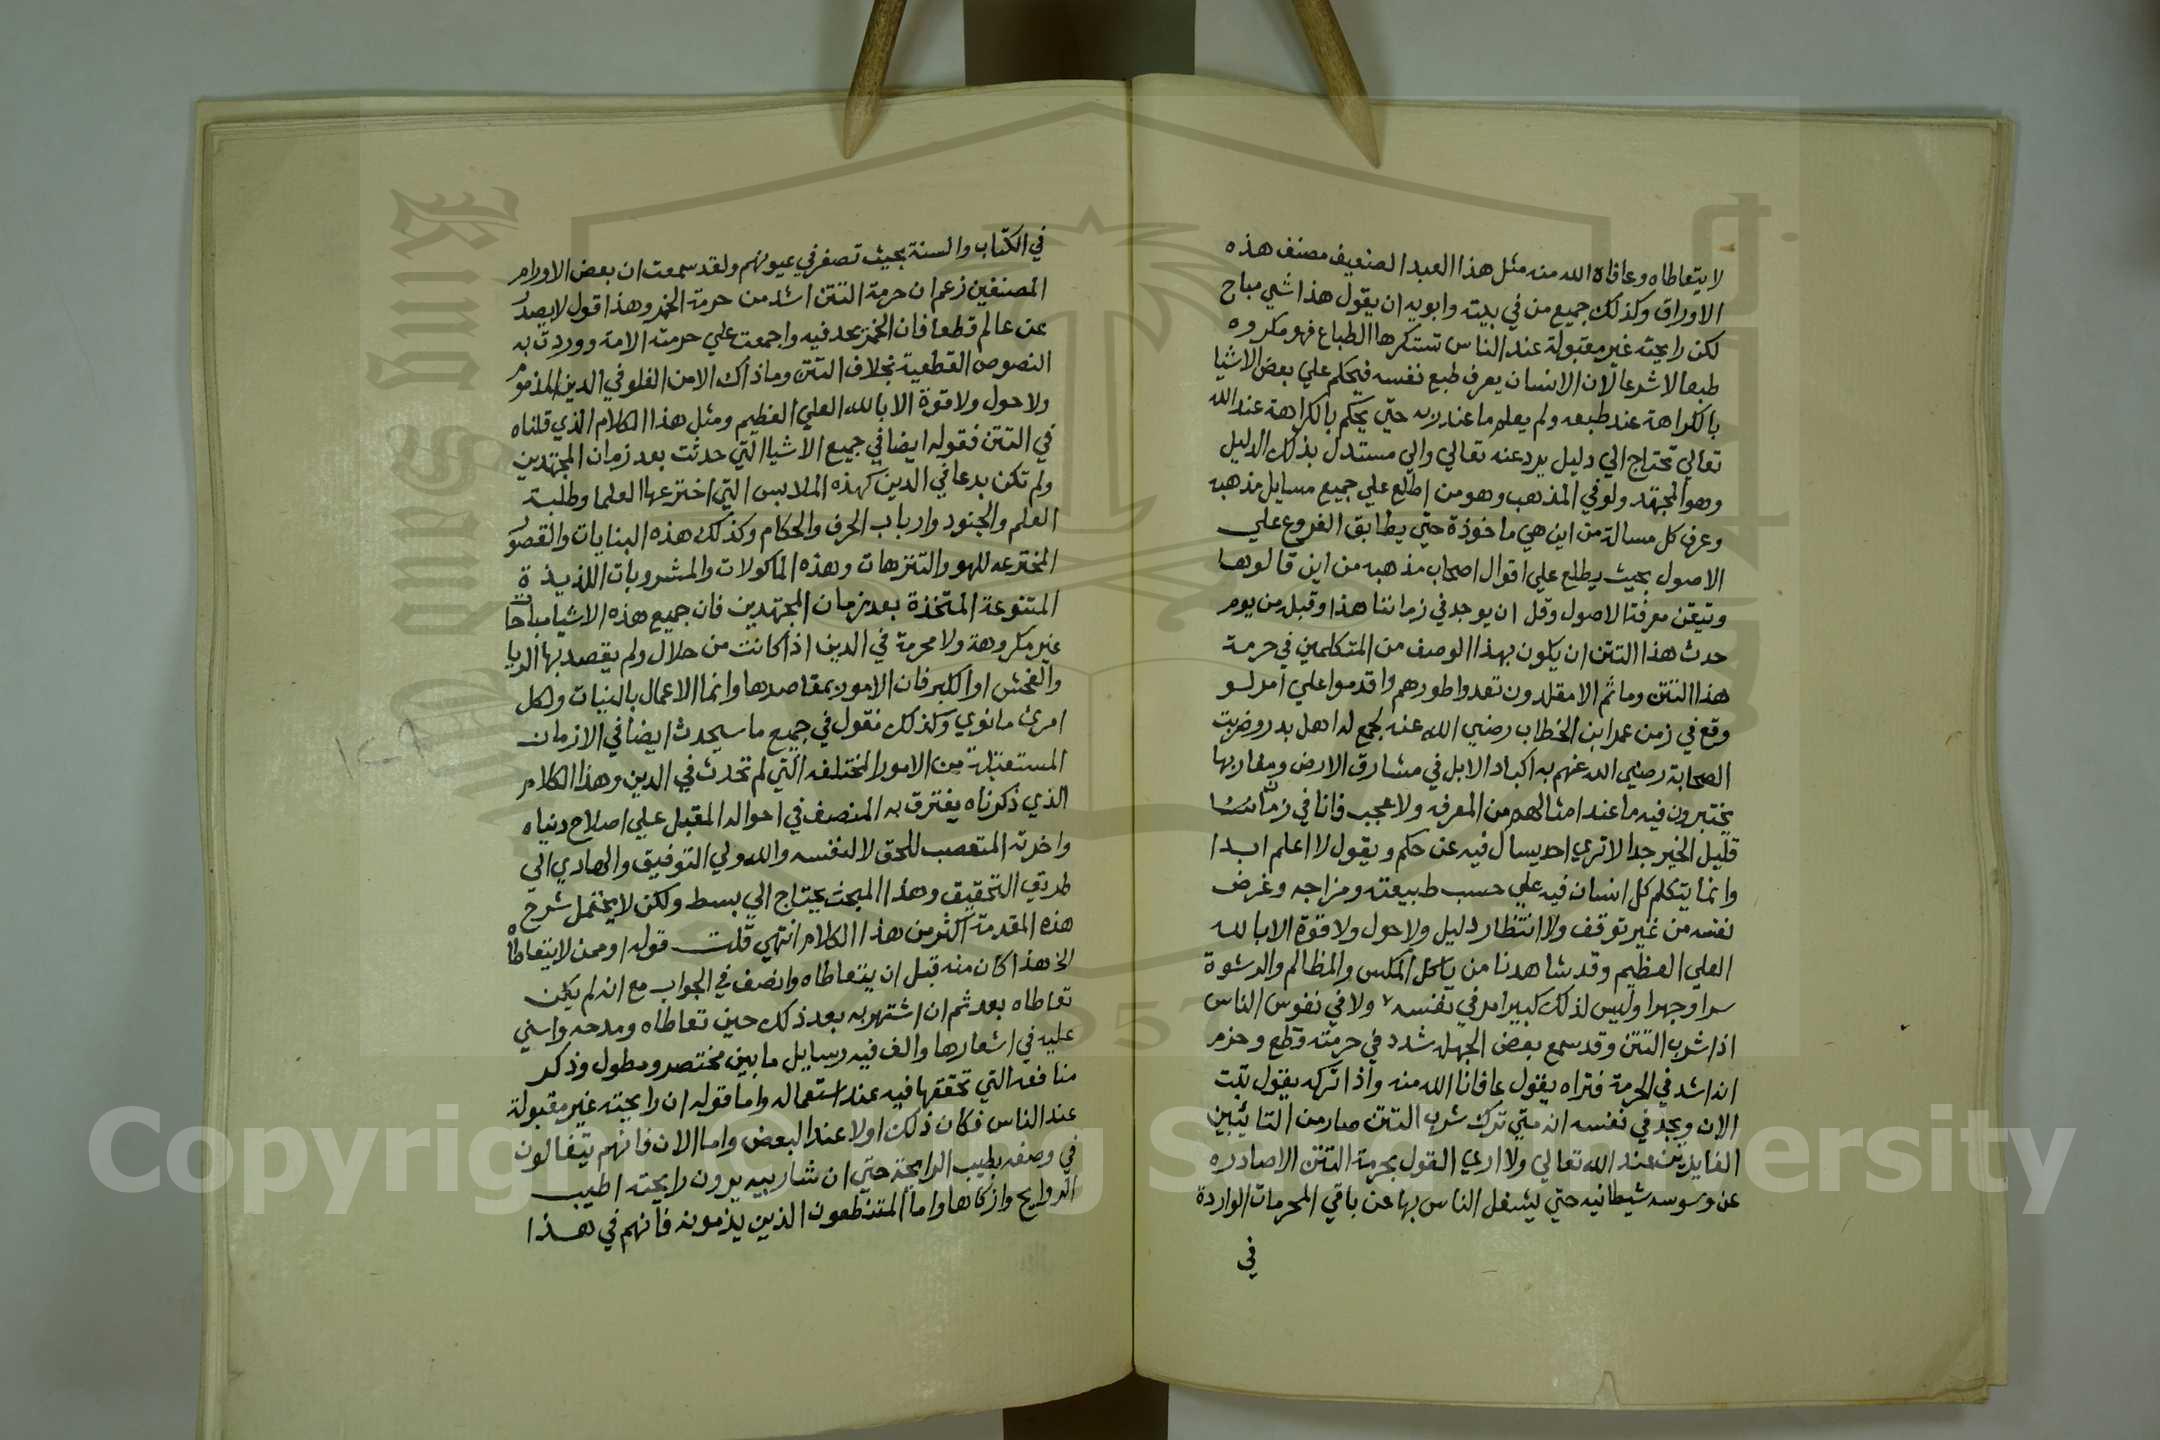 لا يتعاطاه وعافاه الله منه مثل هذا العبد الضعيف مصنف هذه
الاوراق وكذلك جميع من في بيته وابويه ان يقول هذا شي مباح
لكن رايحته غير مقبولة عند الناس تستكرها الطباع فهو مكروه
طبعا لا شرعا لان الانسان يعرف طبع نفسه فيحكم علي بعض الاشيا
بالكراهة عند طبعه ولم يعلم ما عند ربه حتي يحكم بالكراهة عند الله
تعالي تحتاج الي دليل يرد عنه تعالي والي مستدل بذلك الدليل
وهو المجتهد ولو في المذهب وهو من اطلع علي جميع مسايل مذهبه
وعرف كل مسالة من اين هي ماخوذة حتي يطابق الفروع علي
الاصول بحيث يطلع علي اقوال اصحاب مذهبه من اين قالوها
وتيقن معرفة الاصول وقل ان يوجد في زماننا هذا وقبله من يوم
حدث هذا التتن ان يكون بهذا الوصف من المتكلمين في حرمة
هذا التتن وما ثم الا مقلدون تعدوا طورهم واقدموا علي امر لو
وقع في زمن عمر ابن الخطاب رضي الله عنه لجمع له اهل بدر وضربت
الصحابة رضي الله عنهم به اكباد الابل في مشارق الارض ومغاربها
يختبرون فيه ما عند امثالهم من المعرفه ولا عجب فانا في زمان
قليل الخير جدا لا تري احد يسال فيه عن حكم ويقول لا اعلم ابدا
وانما يتكلم كل انسان فيه علي حسب طبيعته ومزاجه وغرض
نفسه من غير توقف ولا انتظار دليل ولا حول ولا قوة الا بالله
العلي العظيم وقد شاهدنا من ياكل المكس والمظالم والرشوة
سرا وجهرا وليس لذلك كبير امر في نفسه ولا في نفوس الناس
اذا شرب التتن وقد سمع بعض الجهله شدد في حرمته وقطع وجزم
انه اشد في الحرمة فتراه يقول عافانا الله منه واذا تركه يقول تبت
الان ويجد في نفسه انه متي ترك شرب التتن صار من التائبين
الفايزين عند الله تعالي ولا اري القول بحرمة التتن الا صادره
عن وسوسه شيطانيه حتي يشغل الناس بها عن باقي المحرمات الواردة
في
في الكتاب والسنة بحيث تصغر في عيونهم ولقد سمعت ان بعض الاورام
المصنفين زعم ان حرمة التتن اشد من حرمة الخمر وهذا قول لا يصدر
عن عالم قطعا فان الخمر يحد فيه واجمعت علي حرمته الامة ووردت به
النصوص القطعية بخلاف التتن وما ذاك الا من الغلو في الدين المذموم
ولا حول ولا قوة الا بالله العلي العظيم ومثل هذا الكلام الذي قلناه
في التتن فقوله ايضا في جميع الاشيا التي حدثت بعد زمان المجتهدين
ولم تكن بدعا في الدين كهذه الملابس التي اخترعها العلما وطلبة
العلم والجنود وارباب الحرف والحكام وكذلك هذه البنايات والقصور
المخترعه للهو والتنزهات وهذه الماكولات والمشروبات اللذيذة
المتنوعة المتخذة بعد زمان المجتهدين فان جميع هذه الاشيا مباحات
غير مكروهة ولا محرمة في الدين اذا كانت من حلال ولم يقصد بها الريا
والفحش او الكبر فان الامور بمقاصدها وانما الاعمال بالنيات ولكل
امرئ ما نوي وكذلك نقول في جميع ما سيحدث ايضا في الازمان
المستقبلة من الامور المختلفه التي لم تحدث في الدين وهذا الكلام
الذي ذكرناه يفترق به المنصف في احواله المقبل علي اصلاح دنياه
واخرته المتعصب للحق لا لنفسه والله ولي التوفيق والهادي الي
طريق التحقيق وهذا المبحث يحتاج الي بسط ولكن لا يحتمل شرح
هذه المقدمة اكثر من هذا الكلام انتهي قلت قوله او ممن لا يتعاطاه
الخ هذا كان منه قبل ان يتعاطاه وانصف في الجواب مع انه لم يكن
تعاطاه بعد ثم ان اشتهر به بعد ذلك حين تعاطاه ومدحه واثني
عليه في اشعارها والف فيه رسايل ما بين مختصر ومطول وذكر
منافعه التي تحققها فيه عند استعماله واما قوله ان رايحته غير مقبولة
عند الناس فكان ذلك اولا عند البعض واما الان فانهم يتغالون
في وصفه بطيب الرايحة حتي ان شاربيه يرون رايحته اطيب
الروايح وازكاها واما المتنطعون الذين يذمونه فانهم في هذا
Copyright © King Saud University
King Saud University
1957